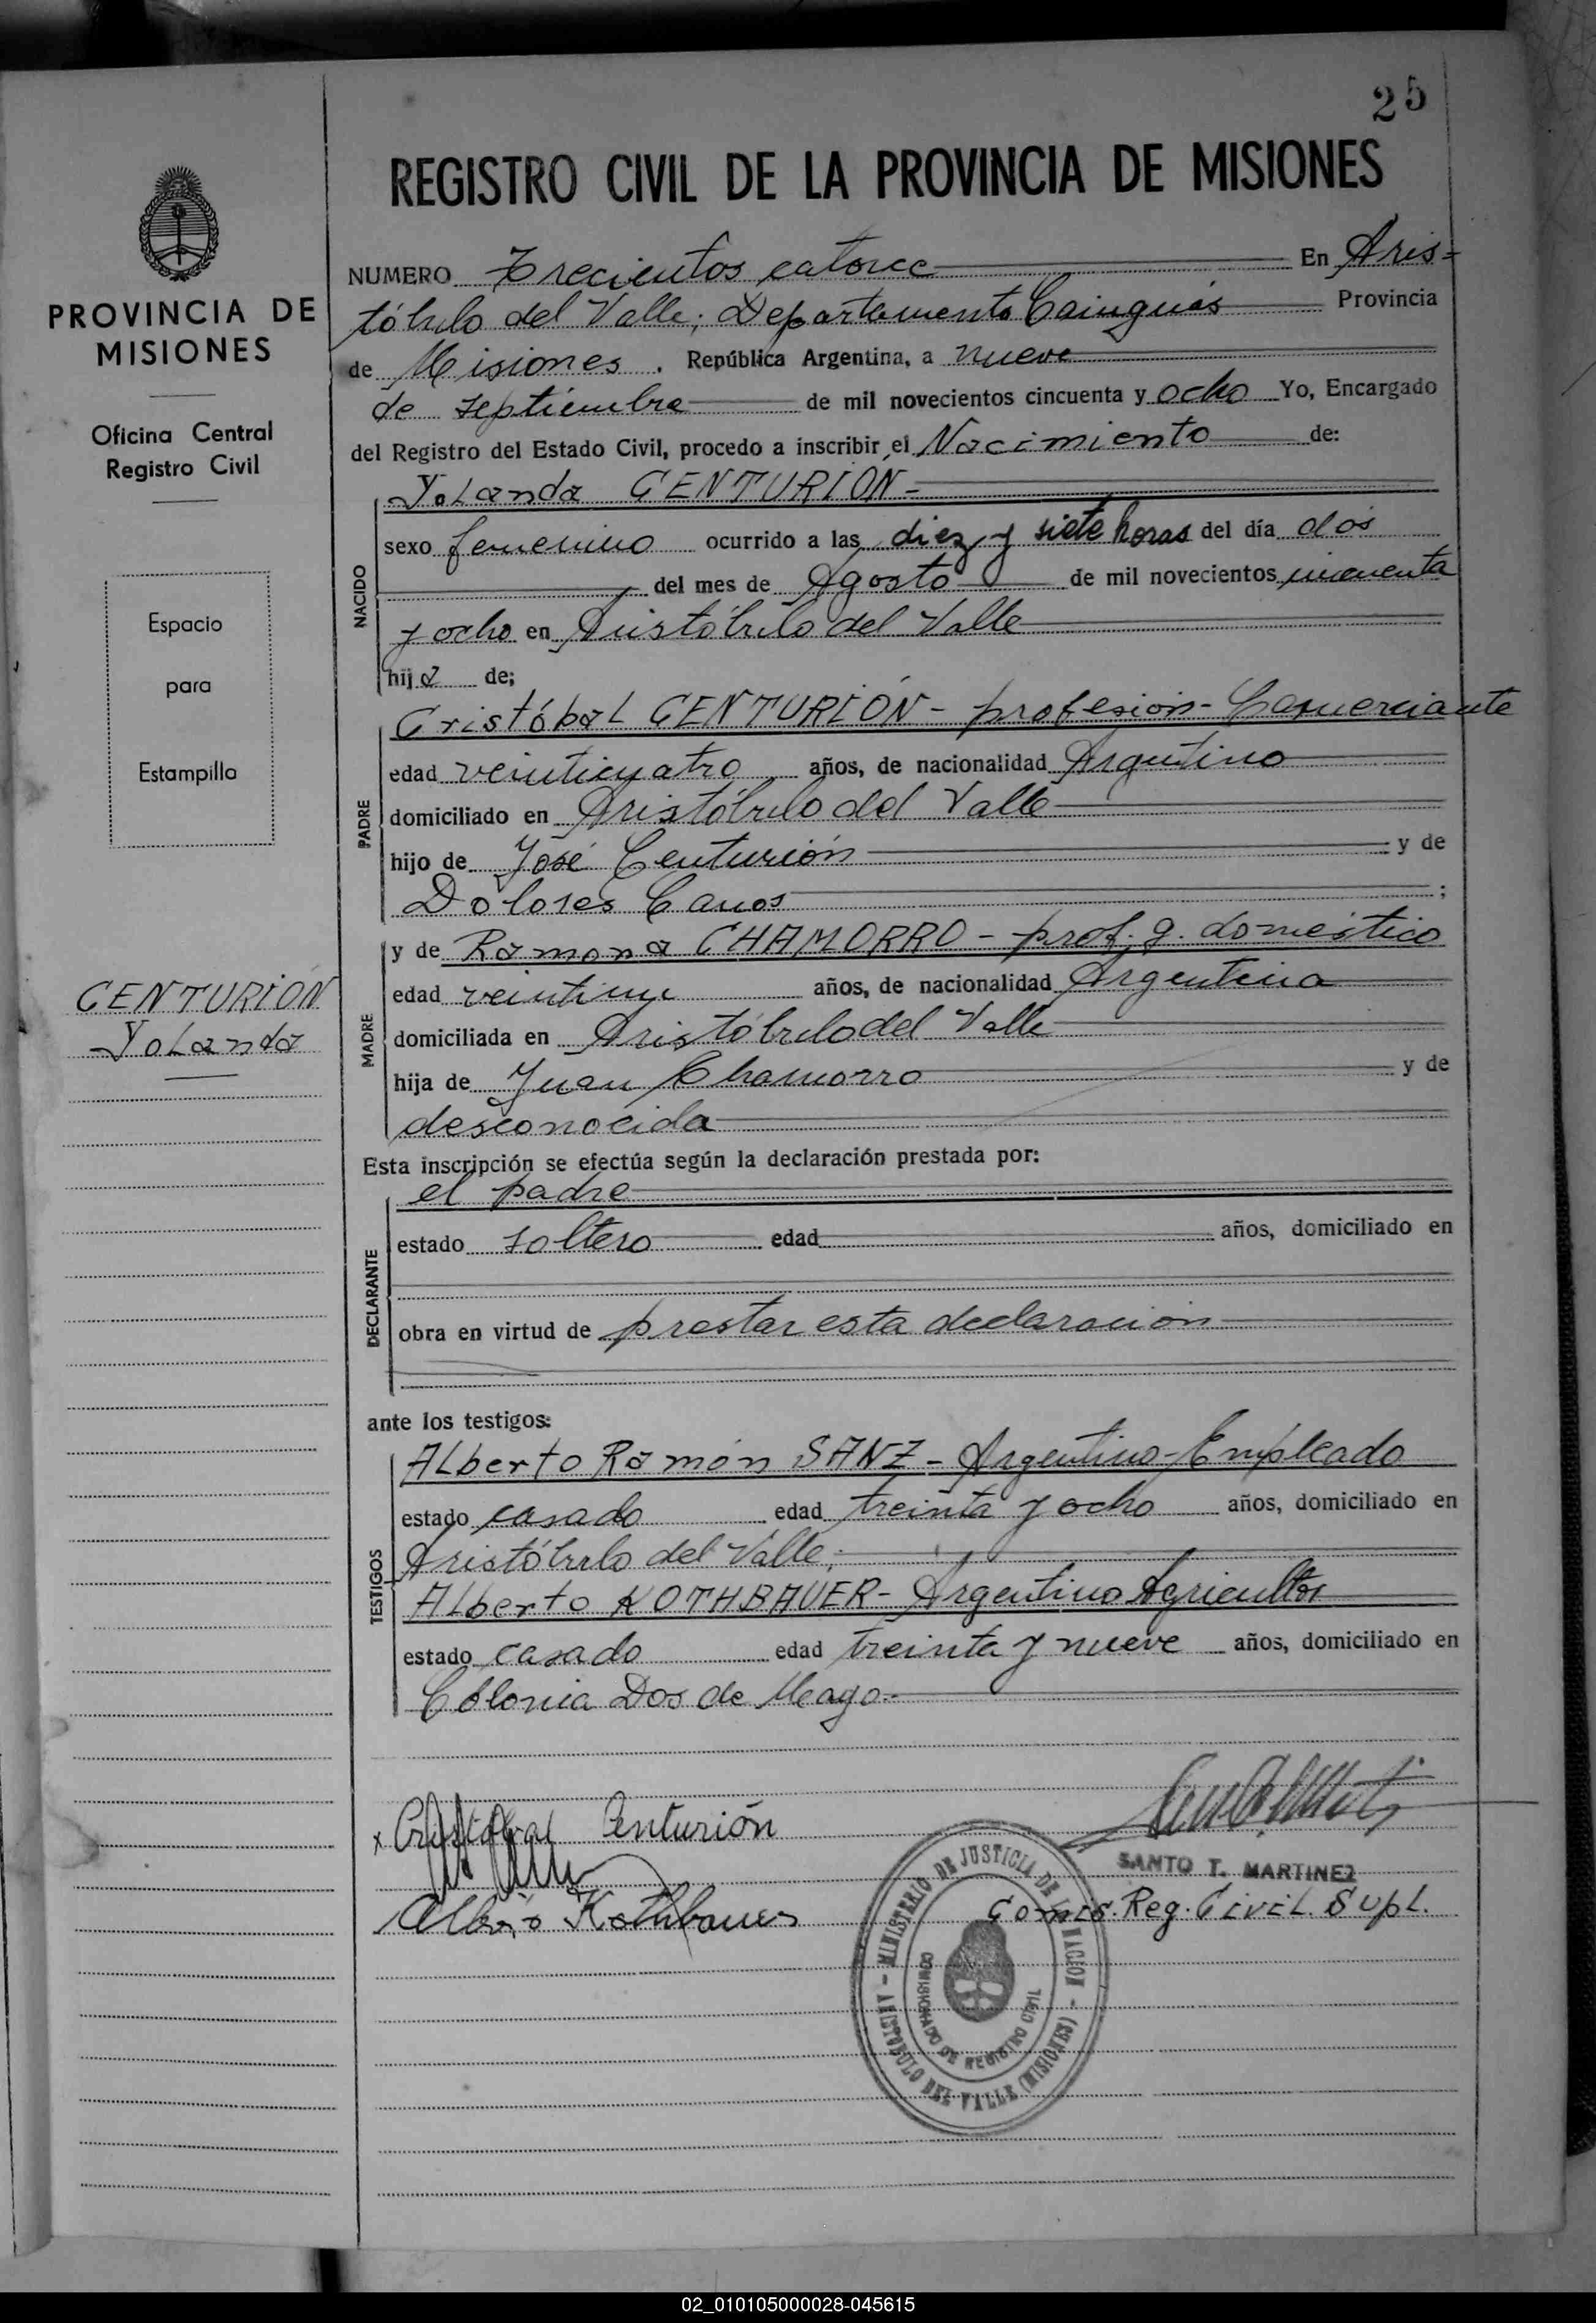 25
REGISTRO CIVIL DE LA PROVINCIA DE MISIONES
PROVINCIA DE
MISIONES
Oficina Central
Registro Civil
Espacio
para
Estampilla
CENTURIÓN
Yolanda
NUMERO Trecientos catorce En Aris-
tóbulo del Valle; Departamento Cainguás Provincia
de Misiones. República Argentina, a nueve
de septiembre de mil novecientos cincuenta y ocho Yo, Encargado
del Registro del Estado Civil, procedo a inscribir el Nacimiento de:
NACIDO
Yolanda CENTURIÓN-
sexo femenino ocurrido a las diez y siete horas del día dos
del mes de Agosto de mil novecientos cincuenta
y ocho en Aristóbulo del Valle
hija de;
PADRE
Cristóbal CENTURIÓN - profesión - Comerciante
edad veinticuatro años, de nacionalidad Argentino
domiciliado en Aristóbulo del Valle
hijo de José Centurión y de
Dolores ;
MADRE
y de Ramona CHAMORRO - prof. q. doméstico
edad años, de nacionalidad Argentina
domiciliada en Aristóbulo del Valle
hija de Juan Chamorro y de
desconocida
Esta inscripción se efectúa según la declaración prestada por:
DECLARANTE
el padre
estado soltero edad años, domiciliado en
obra en virtud de prestar esta declaración
ante los testigos:
TESTIGOS
Alberto Ramón SANZ - Argentino - Empleado
estado casado edad treinta y ocho años, domiciliado en
Aristóbulo del Valle;
Alberto KOTHBAUER - Argentino Agricultor
estado casado edad treinta y nueve años, domiciliado en
Colonia Dos de Mayo.-
x Cristobal Centurión
Alberto Kothbauer
SANTO T. MARTINEZ
Comis. Reg. Civil. Supl.
MINISTERIO DE JUSTICIA DE LA NACION - ARISTOBULO DEL VALLE (MISIONES)
COMISIONADO DE REGISTRO CIVIL
02_010105000028-045615